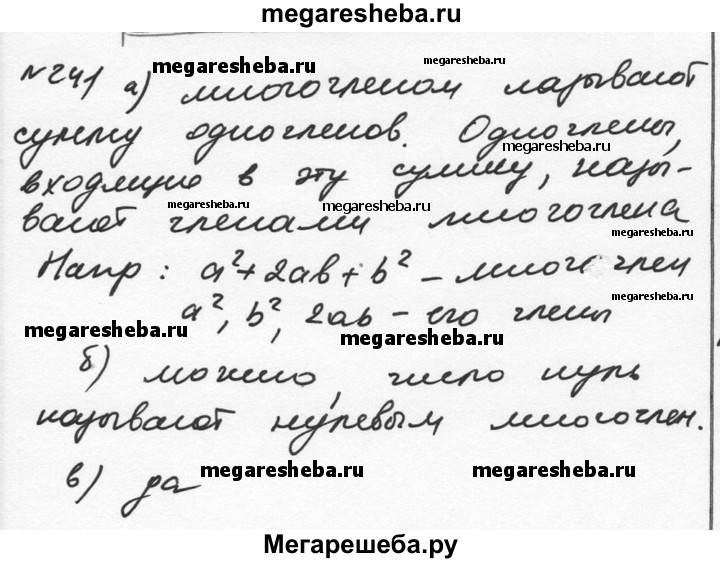 megaresheba.ru
№241 а) многочленом называют
megaresheba.ru
megaresheba.ru
сумму одночленов. Одночлены,
megaresheba.ru
megaresheba.ru
входящие в эту сумму, назы-
вают членами многочлена
megaresheba.ru
megaresheba.ru
megaresheba.ru
Напр: a²+2ab+b² – многочлен
a², b², 2ab – его члены
megaresheba.ru
megaresheba.ru
megaresheba.ru
б) можно, число нуль
называют нулевым многочлен.
в) да
megaresheba.ru
megaresheba.ru
Мегарешеба.ру